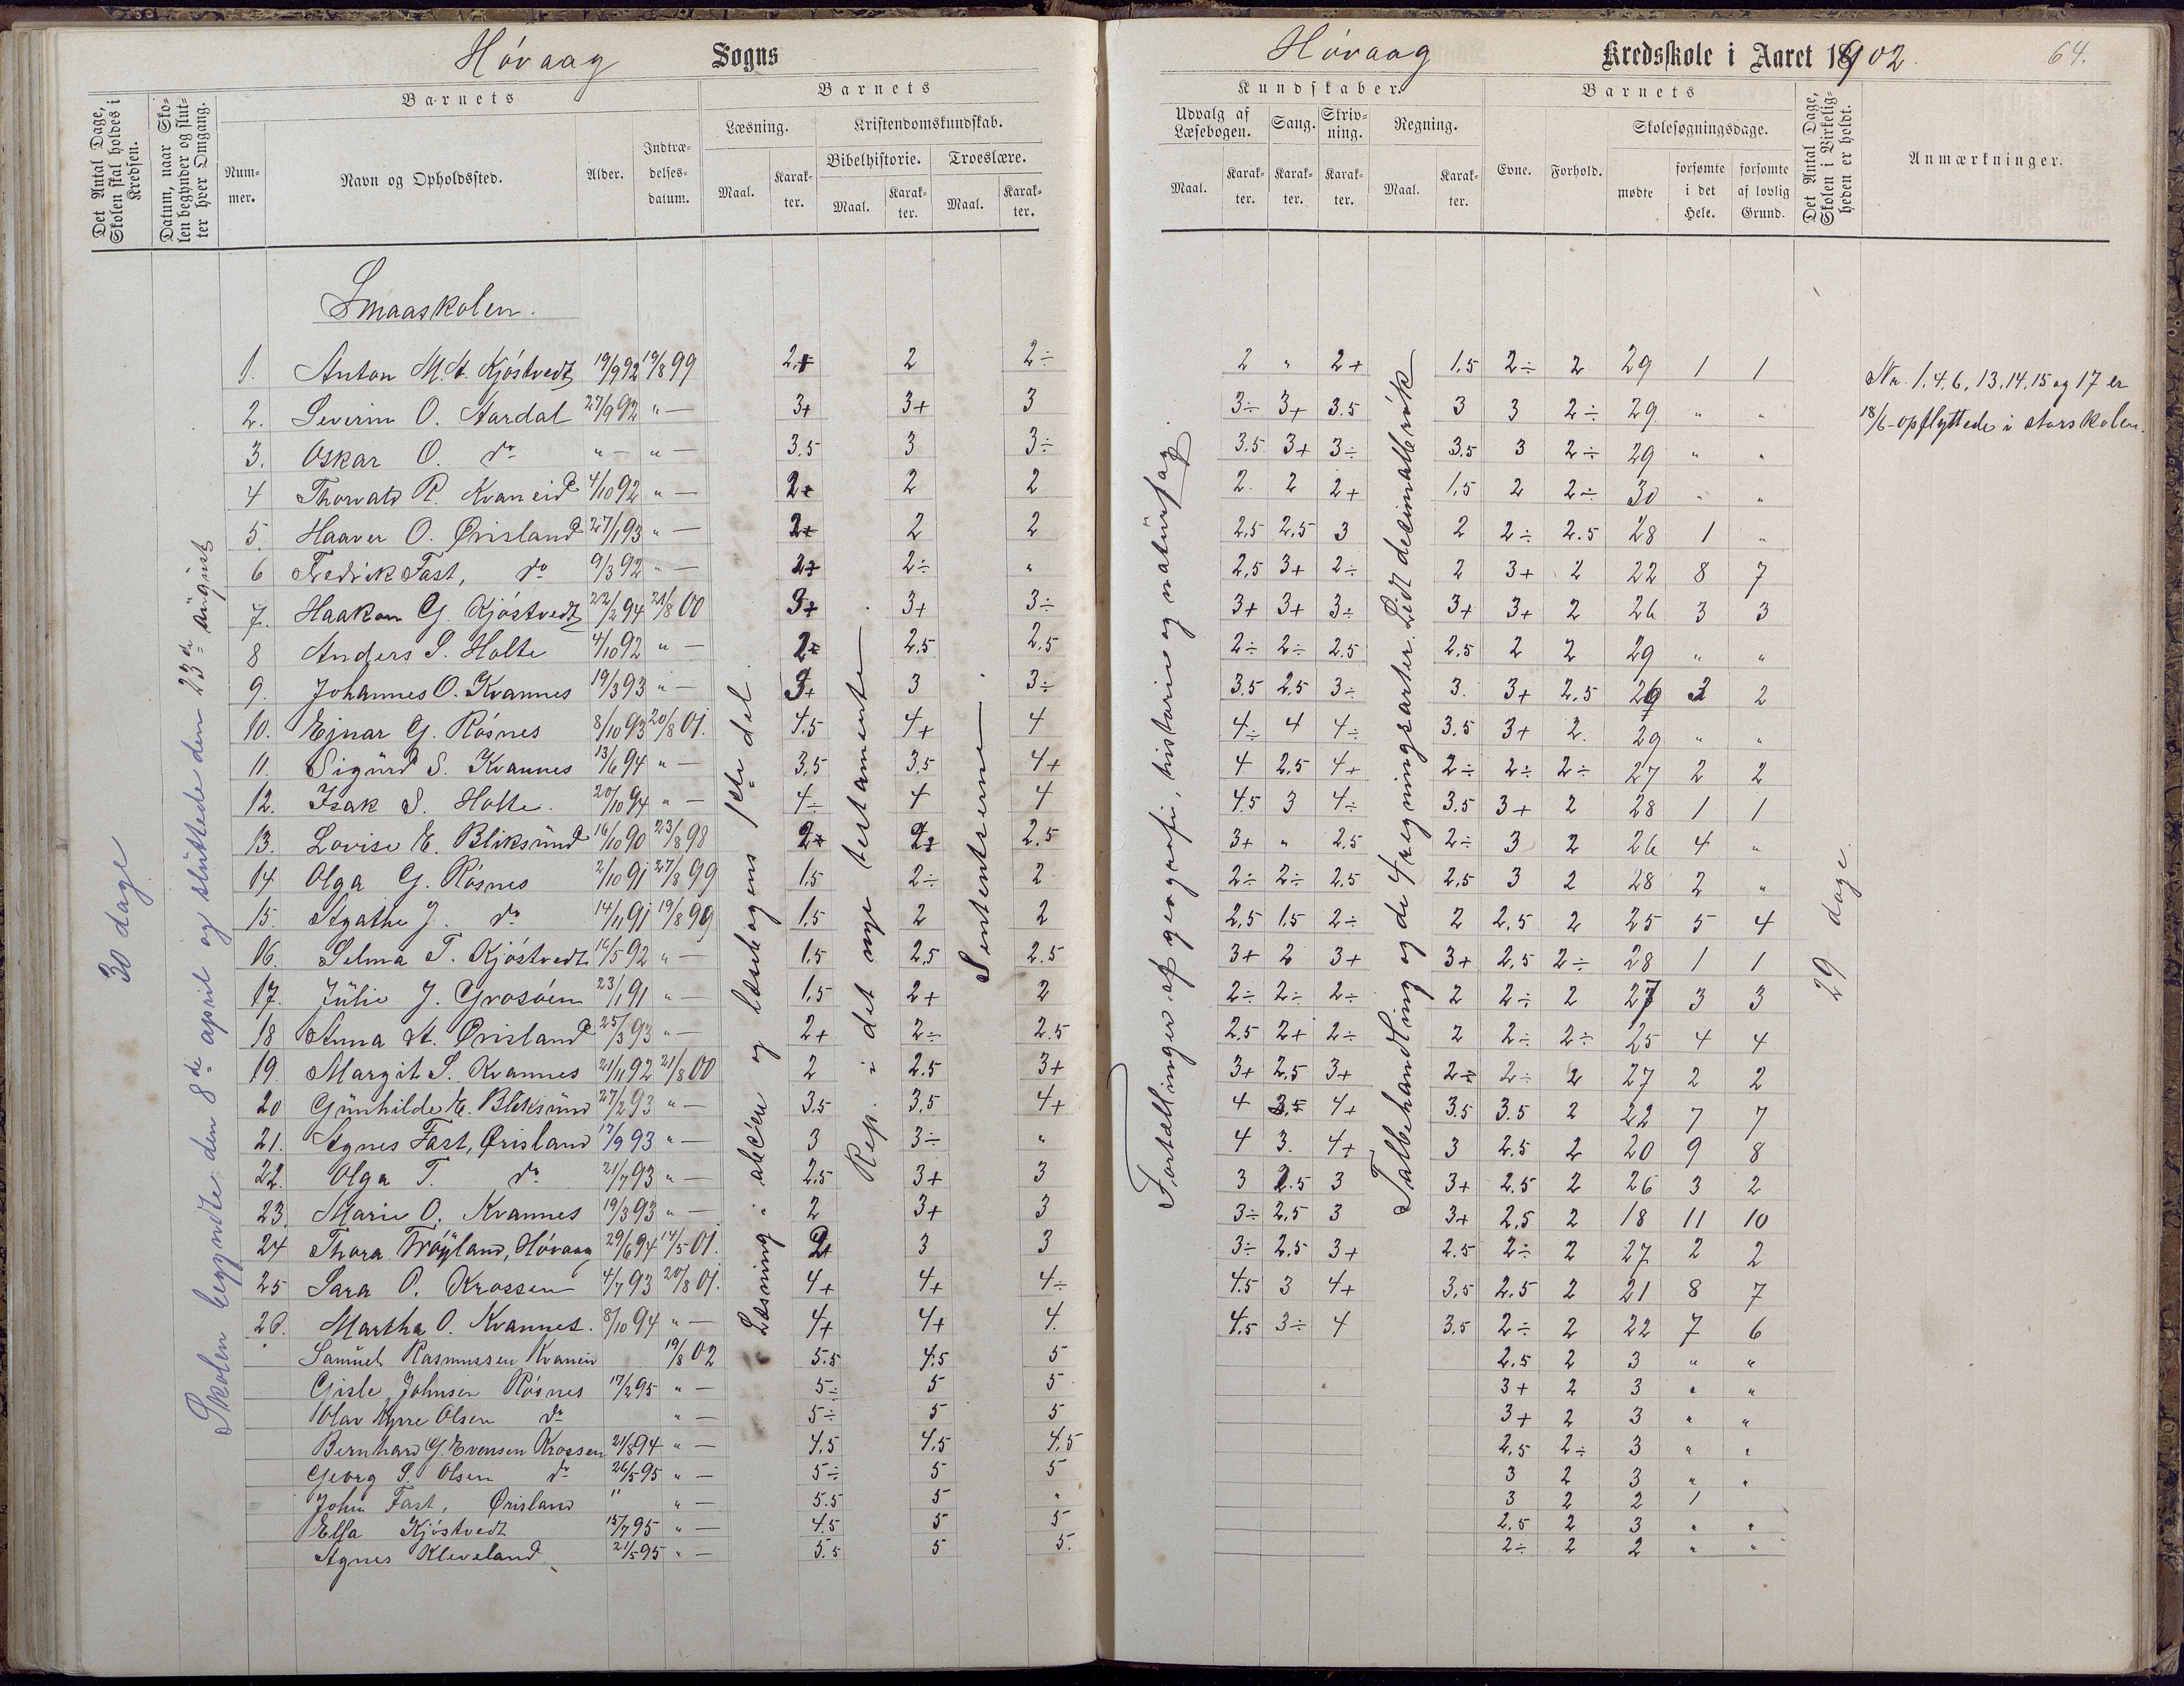 Hóvaag Sogns
Hóvaag Kredsskole i Aaret 1902. 64.
Det Antal Dage, Skolen skal holdes i Kredsen.
Datum, naar Skolen begynder og slutter hver Omgang.
Barnets
Nummer.
Navn og Opholdssted.
Alder.
Indtrædelsesdatum.
Barnets
Læsning.
Kristendomskundskab.
Bibelhistorie.
Troeslære.
Maal. Karakter. Maal. Karakter. Maal. Karakter.
Kundskaber.
Udvalg af Læsebogen.
Sang.
Skrivning.
Regning.
Maal. Karakter. Karakter. Karakter. Maal. Karakter.
Barnets
Evne. Forhold.
Skolesøgningsdage.
mødte
forsømte i det Hele.
forsømte af lovlig Grund.
Det Antal Dage, Skolen i Virkeligheden er holdt.
Anmærkninger.
30 dage
Skolen begyndte den 8de april og sluttede den 23de august
Læsning i abc'en og læsebogens 1ste del.
Rep. i det nye testamente
Sentenserne
Fortællinger af geografi, historie og naturfag.
Talbehandling og de 4 regningsarter. Lidt decimalbrøk
29 dage.
Smaaskolen.
1. Anton M. A. Kjóstvedt 19/9 92 19/8 99 2+ 2 2÷ 2 " 2+ 1,5 2÷ 2 29 1 1
Nr. 1, 4, 6, 13, 14, 15 og 17 er
2. Severin O. Aardal 27/9 92 " — 3+ 3+ 3 3÷ 3+ 3.5 3 3 2÷ 29 " "
18/6 opflyttede i storskolen.
3. Oskar O. do " — " — 3,5 3 3÷ 3.5 3+ 3÷ 3.5 3 2÷ 29 " "
4 Thorvald R. Kvaneid 4/10 92 " — 2+ 2 2 2. 2 2+ 1,5 2 2÷ 30 " "
5. Haaver O. Ørisland 27/1 93 " — 2+ 2 2 2,5 2,5 3 2 2÷ 2.5 28 1 "
6 Fredrik Fast, do 9/3 92 " — 2+ 2÷ " 2,5 3+ 2÷ 2 3+ 2 22 8 7
7. Haakon G. Kjóstvedt 22/2 94 21/8 00 3+ 3+ 3÷ 3+ 3+ 3÷ 3+ 3+ 2 26 3 3
8 Anders S. Holte 4/10 92 " — 2÷ 2,5 2,5 2÷ 2÷ 2.5 2,5 2 2 29 " "
9. Johannes O. Kvannes 19/3 93 " — 3+ 3 3÷ 3.5 2.5 3÷ 3. 3+ 2,5 26 2 2
10. Ejnar G. Rósnes 8/10 93 20/8 01. 4.5 4+ 4 4÷ 4 4÷ 3.5 3+ 2. 29 " "
11. Sigurd S. Kvannes 13/6 94 " — 3,5 3.5 4+ 4 2,5 4+ 2÷ 2÷ 2÷ 27 2 2
12. Isak S. Holte. 20/10 94 " — 4÷ 4 4 4.5 3 4÷ 3.5 3+ 2 28 1 1
13. Lovise E. Bliksund 16/10 90 23/8 98 2+ 2+ 2.5 3+ " 2.5 2÷ 3 2 26 4 "
14. Olga G. Rósnes 2/10 91 27/8 99 1,5 2÷ 2 2÷ 2÷ 2.5 2,5 3 2 28 2 "
15. Agathe J. do 14/11 91 19/8 99 1,5 2 2 2,5 1.5 2÷ 2 2,5 2 25 5 4
16. Selma T. Kjóstvedt 14/5 92 " — 1.5 2,5 2.5 3+ 2 3+ 3+ 2,5 2÷ 28 1 1
17. Julie J. Grosóen 23/1 91 " — 1,5 2+ 2 2÷ 2÷ 2÷ 2 2÷ 2 27 3 3
18 Anna A. Ørisland 25/3 93 " — 2+ 2÷ 2.5 2.5 2+ 2÷ 2 2÷ 2÷ 25 4 4
19. Margit S. Kvannes 21/11 92 21/8 00 2 2.5 3+ 3+ 2,5 3+ 2÷ 2÷ 2 27 2 2
20 Gunhilde E. Bliksund 27/2 93 " — 3.5 3,5 4+ 4 3,5 4+ 3.5 3.5 2 22 7 7
21. Agnes Fast, Ørisland 17/9 93 " — 3 3÷ " 4 3. 4+ 3 2.5 2 20 9 8
22. Olga T. do 21/7 93 " — 2,5 3+ 3 3 2.5 3 3+ 2.5 2 26 3 2
23. Marie O. Kvannes 19/3 93 " — 2 3+ 3 3÷ 2,5 3 3+ 2,5 2 18 11 10
24 Thora Tróyland, Hóvaag 29/6 94 14/5 01. 2+ 3 3 3÷ 2.5 3+ 2.5 2÷ 2 27 2 2
25 Sara O. Krossen 4/7 93 20/8 01. 4+ 4+ 4÷ 4.5 3 4+ 3,5 2.5 2 21 8 7
26. Martha O. Kvannes. 8/10 94 " — 4+ 4+ 4. 4.5 3÷ 4 3.5 2÷ 2 22 7 6
Samuel Rasmussen Kvaneid 19/8 02 5.5 4.5 5 2.5 2 3 " "
Gisle Johnsen Rósnes 17/2 95 " — 5÷ 5 5 3+ 2 3 " "
Olav Kyrre Olsen do " — 5÷ 5 5 3+ 2 3 " "
Bernhard G. Evensen Krossen 21/8 94 " — 4,5 4.5 4,5 2.5 2÷ 3 " "
Georg S. Olsen do 26/5 95 " — 5÷ 5 5 3 2 3 " "
John Fast, Ørisland " " — 5.5 5 " 3 2 2 1
Elsa Kjóstvedt 15/7 95 " — 4.5 5 5 2,5 2 3 " "
Agnes Kleveland 21/5 95 " — 5.5 5 5. 2÷ 2 2 " "